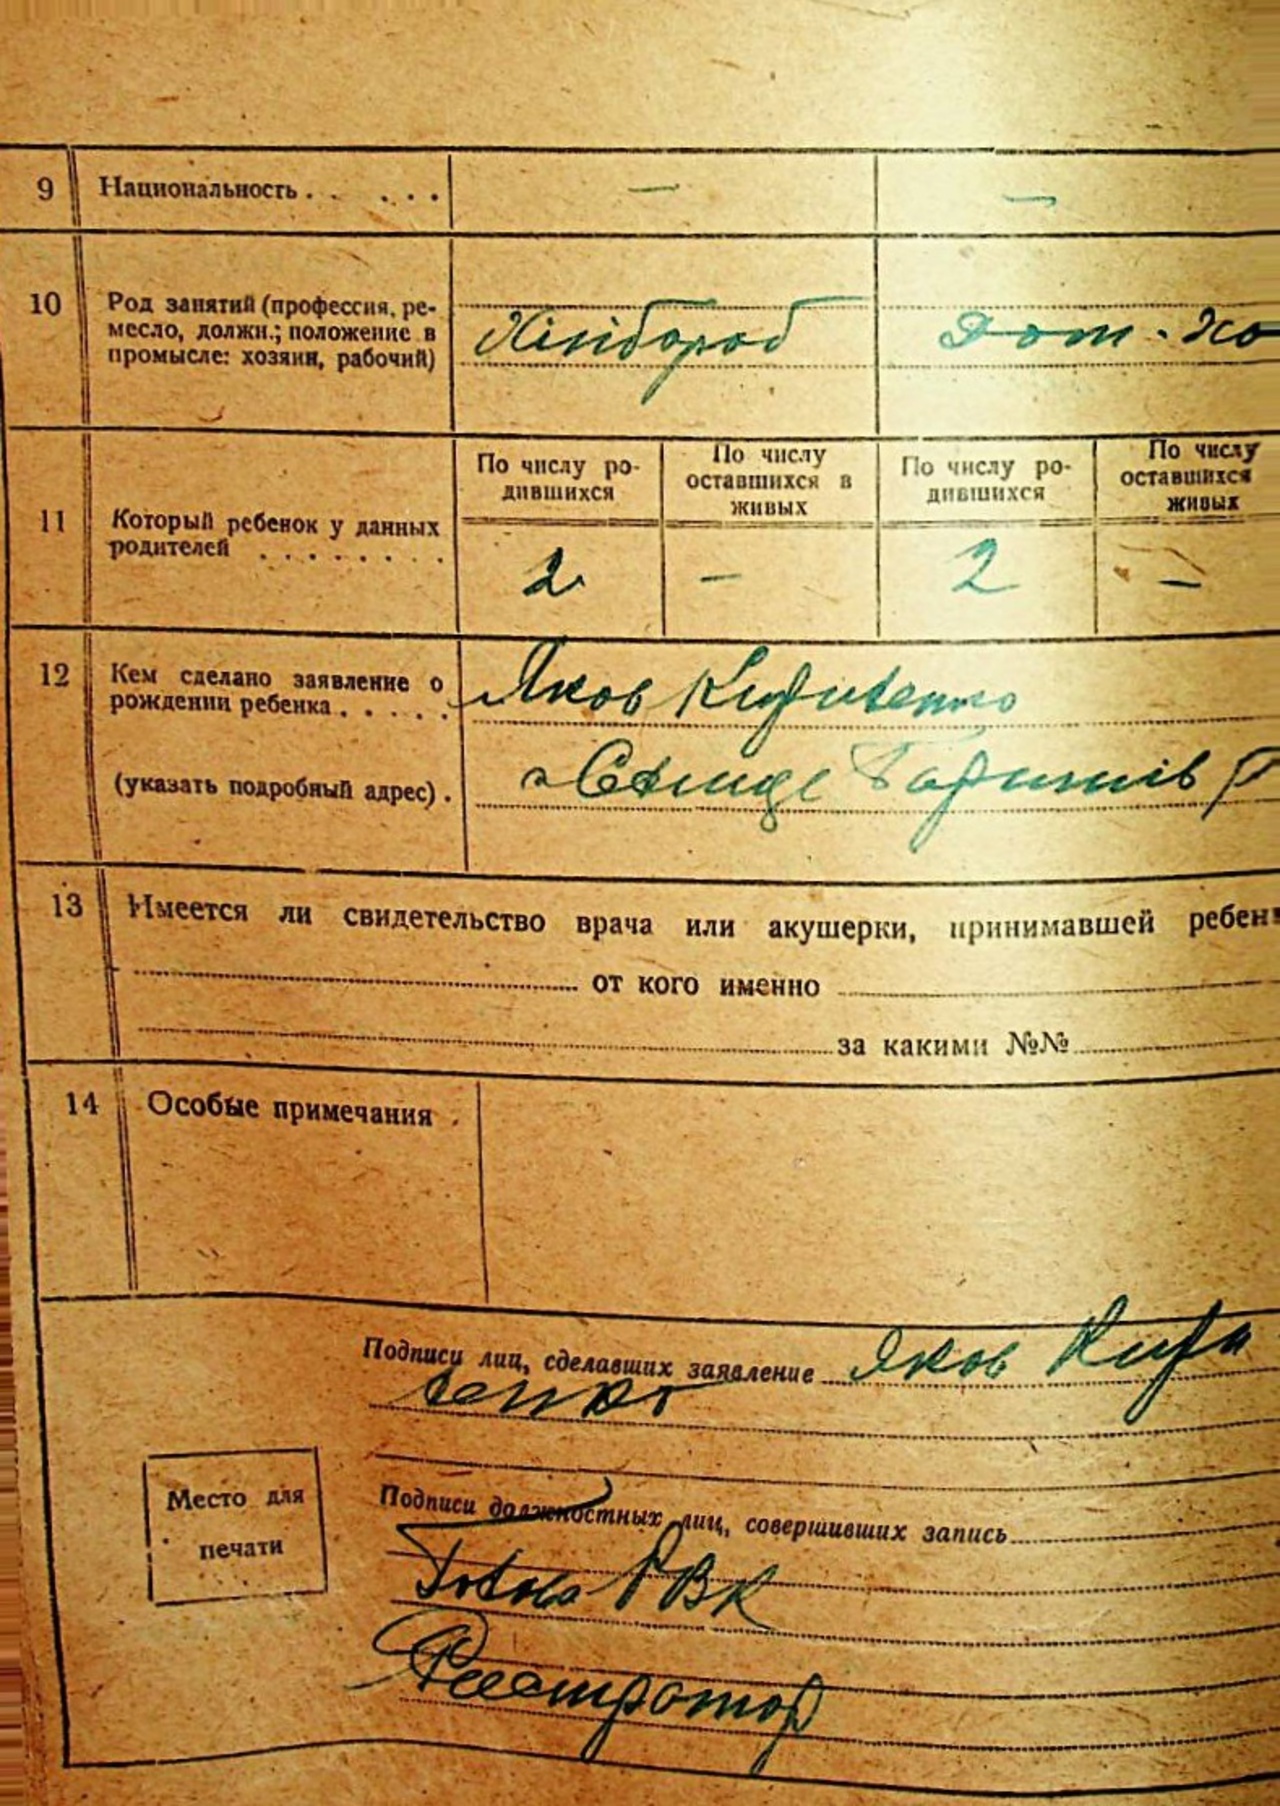 9 Национальность . . . . . — —
10 Род занятий (профессия, ре-
месло, должн.; положение в
промысле: хозяин, рабочий)
Хлібороб Дом. хо
11 Который ребенок у данных
родителей . . . . . . . .
По числу ро-
дившихся
По числу
оставшихся в
живых
По числу ро-
дившихся
По числу
оставшихся
живых
2 — 2 —
12 Кем сделано заявление о
рождении ребенка . . . . .
Яков Кириченко
(указать подробный адрес) .
13 Имеется ли свидетельство врача или акушерки, принимавшей ребен
от кого именно
за какими №№
14 Особые примечания .
Подписи лиц, сделавших заявление Яков Кири
ченко
Место для
печати
Подписи должностных лиц, совершивших запись
Голова РВК
Реєстратор